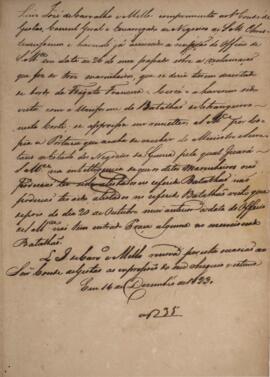 Luiz José de Carvalho e Mello comprimenta ao Sr. Conde de
Gestas, Consul Geral e Encarregado de Negocios de S. M. Chris-
tianissima e havendo já accusado a recepção do Officio de
S. M.ce em data de 26 do mez passado sobre a reclamação
que fez de tres marinheiros, que se diz terem desertado
de bordo da Fragata Franceza e haverem sido
vistos com o Uniforme do Batalhão de Estrangeiros
nesta Corte, se apressa em remetter a S. M.ce por Co-
pia a Portaria que acaba de receber do Ministro e Secre-
tario d'Estado dos Negocios da Guerra pela qual ficará
S. M.ce na intelligencia de que os ditos marinheiros não
poderão ter sido alistados no referido Batalhão não
poderão ter sido alistados no referido Batalhão visto que
depois do dia 20 de Outubro mui anterior a data do Officio
de S. M.ce não tem entrado Praça alguma no mencionado
Batalhão.
L. J. de Carvo. e Mello renova por esta occasião ao
Snr. Conde de Gestas as expressões do seu obsequio e estima
Em 16 de Dezembro de 1823.
nº 235